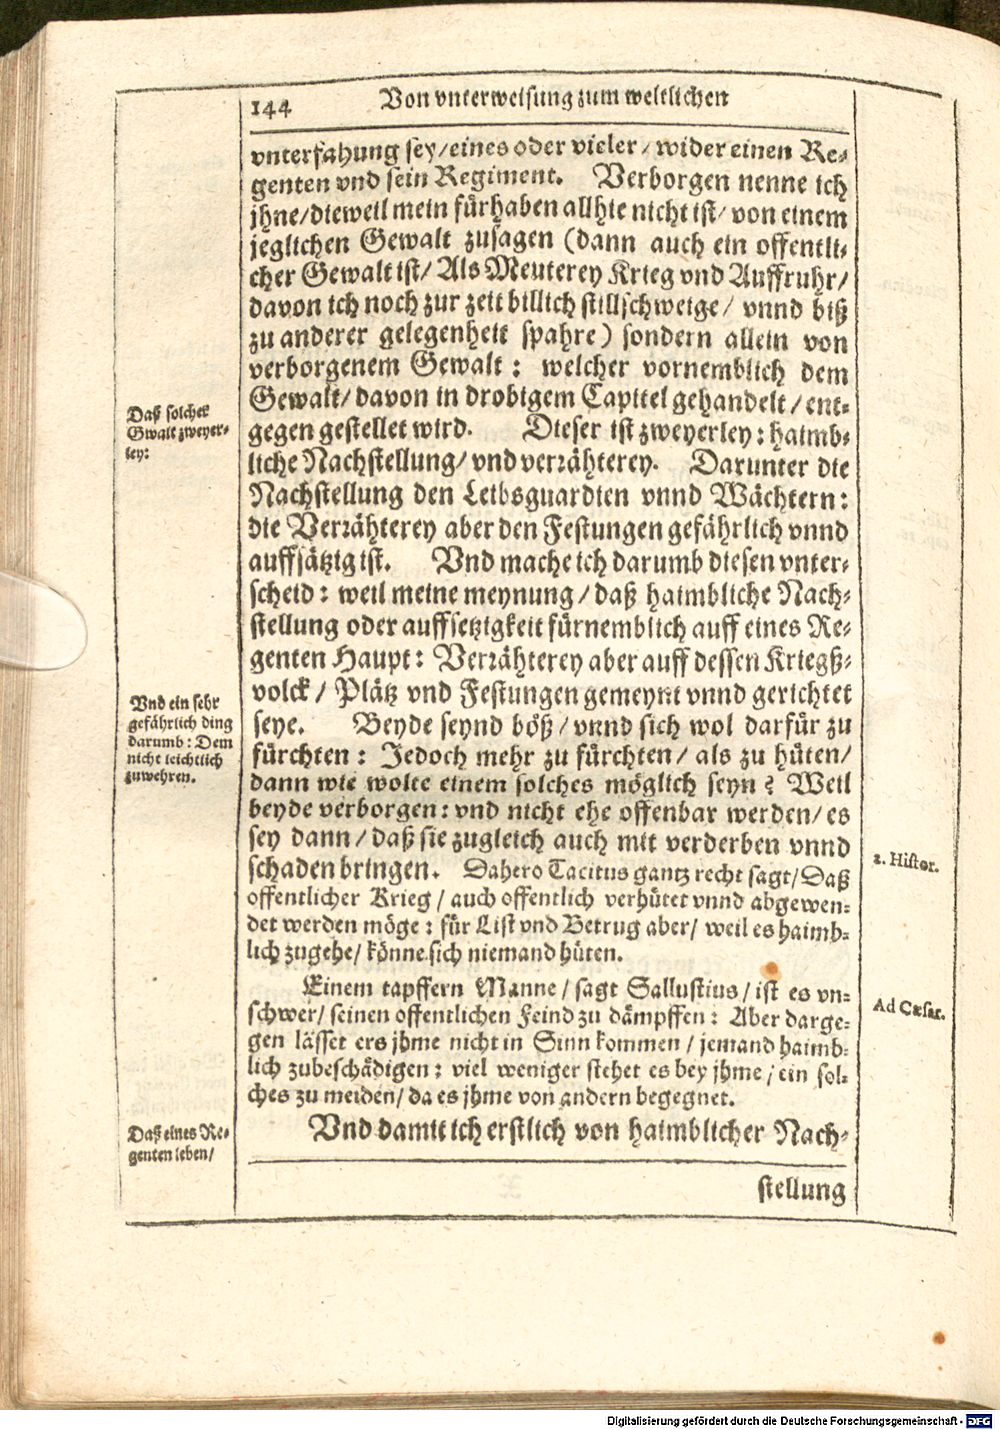 144 Von vnterweisung zum weltlichen
vnterfahung sey/eines oder vieler/ wider einen Re-
genten vnd sein Regiment. Verborgen nenne ich
jhne/dieweil mein fürhaben allhie nicht ist/ von einem
jeglichen Gewalt zusagen (dann auch ein offentli-
cher Gewalt ist/ Als Meuterey Krieg vnd Auffruhr/
davon ich noch zur zeit billich stillschweige/ vnnd biß
zu anderer gelegenheit spahre) sondern allein von
verborgenem Gewalt: welcher vornemblich dem
Gewalt/ davon in drobigem Capitel gehandelt/ ent-
gegen gestellet wird. Dieser ist zweyerley: haimb-
liche Nachstellung/ vnd verrähterey. Darunter die
Nachstellung den Leibsguardien vnnd Wächtern:
die Verrähterey aber den Festungen gefährlich vnnd
auffsätzig ist. Vnd mache ich darumb diesen vnter-
scheid: weil meine meynung/ daß haimbliche Nach-
stellung oder auffsetzigkeit fürnemblich auff eines Re-
genten Haupt: Verrähterey aber auff dessen Kriegß-
volck/ Plätz vnd Festungen gemeynt vnnd gerichtet
seye. Beyde seynd böß/ vnnd sich wol darfür zu
fürchten: Jedoch mehr zu fürchten/ als zu hüten/
dann wie wolte einem solches möglich seyn? Weil
beyde verborgen: vnd nicht ehe offenbar werden/ es
sey dann/ daß sie zugleich auch mit verderben vnnd
schaden bringen. Dahero Tacitus gantz recht sagt/ Daß
offentlicher Krieg/ auch offentlich verhütet vnnd abgewen-
det werden möge: für List vnd Betrug aber/ weil es haimb-
lich zugehe/ könne sich niemand hüten.
Einem tapffern Manne/ sagt Sallustius/ ist es vn-
schwer/ seinen offentlichen Feind zu dämpffen: Aber darge-
gen lässet ers jhme nicht in Sinn kommen/ jemand haimb-
lich zubeschädigen: viel weniger stehet es bey jhme/ ein sol-
ches zu meiden/ da es jhme von andern begegnet.
Vnd damit ich erstlich von haimblicher Nach-
stellung
Daß solcher
Gwalt zweyer-
ley:
Vnd ein sehr
gefährlich ding
darumb: Dem
nicht leichtlich
zuwehren.
Daß eines Re-
genten leben/
2. Histor.
Ad Cæsar.
Digitalisierung gefördert durch die Deutsche Forschungsgemeinschaft - DFG